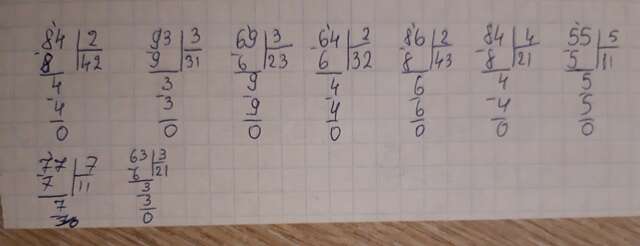 84 2 93 3 69 3 64 2 86 2 84 4 55 5
-8 42 -9 31 -6 23 -6 32 -8 43 -8 21 -5 11
4 3 9 4 6 4 5
-4 -3 -9 -4 6 -4 5
0 0 0 0 0 0 0
77 7 63 3
7 11 6 21
7 3
3
0